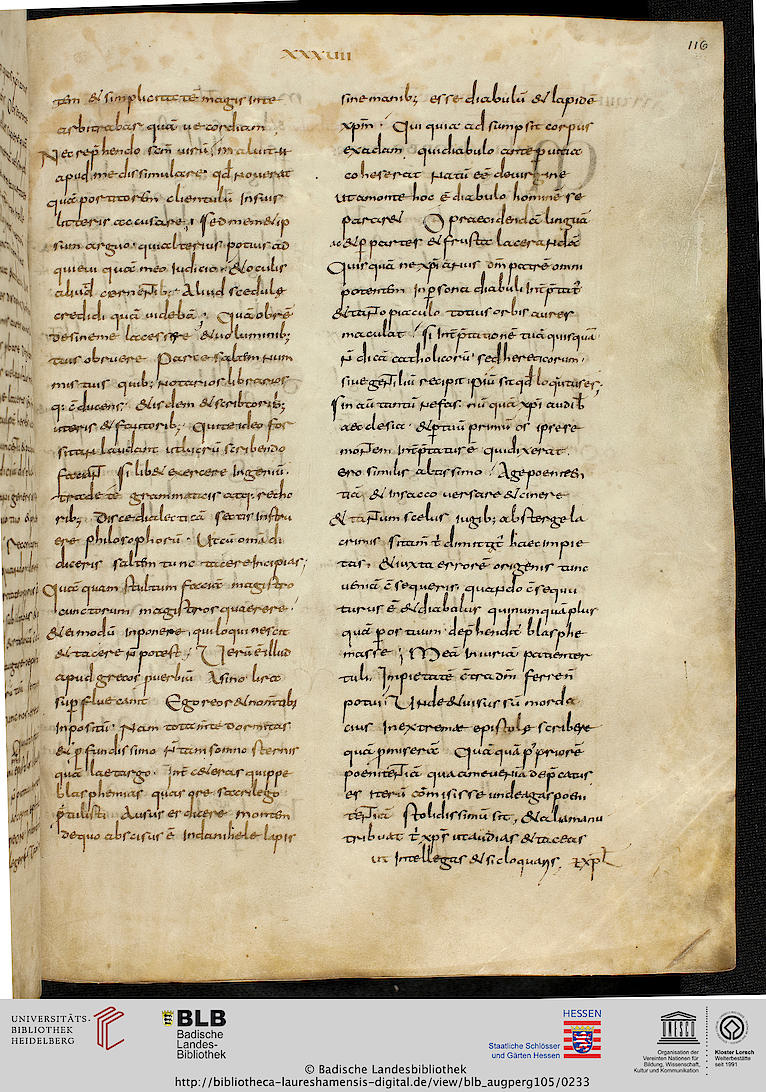 XXXVIII
116
tem & simplicitatē magis inte
arbitrabar quā uecordiam
Nec rep̄hendo scm̄ uirū, maluit
apud me dissimulare, qd̄ nouerat
quā portitorem clientulū In suis
litteris accusare; Sed memeip
sum arguo, qui alterius potius ad
quieui quā meo Iudicio, & oculis
aliud cernentib; Aliud scedulę
credidi quā uidebā. Quā obrē
desineme lacessere, & uoluminib;
tuis obruere Parce saltem num
mis tuis quib; notarios librarios
q; cōducens, & isdem & scribtorib;
uteris & fautorib; Qui te ideo for
sitan laudant ut lucrū scribendo
faciant Si libet exercere Ingeniū
trade te grammaticis atq; retho
rib; disce dialecticā sectis Instru
ere philosophorū Ut cū omia di
diceris saltem tunc tacere Incipias;
Quā quam stultum faciā magistro
cunctorum magistros quaerere,
& ei modū Inponere, qui loqui nescit
& tacere n̄ potest; Uerū ē illud
apud grecos ꝓuerbiū Asino lira
Nam
& ꝓfundissimo somno stertis
quā laetargo. Int̄ ceteras quippe
blasphemias quas ore sacrilego
ꝓtulisti Ausus es dicere montem
de quo abscisus ē In danihele lapis
sine manib; esse diabulū & lapidē
xp̄m. Qui quia adsumpsit corpus
ex adam, qui diabulo ante p uitia
coheserat Natū eē de uirgine
ut a monte hoc ē diabulo hominē se
pararet O praecidendā linguā
ac ꝑ partes & frusta lacerandā
Quisquā ne xp̄ianus dm̄ patrē omni
potentem In ꝑsona diabuli Int̄p̄tat̄
& tanto piaculo totius orbis aures
maculat; Si Int̄p̄tationē tuā quisquā
n̄ dicā catholicorū sed hereticorum,
siue gentiliū recipit piū sit qd̄ loquutus es;
Sin autē tantū nefas nū quā xp̄i audib̄
aecclesia, & ꝑ tuū primū os ipse re
montem Int̄p̄tatus ē qui dixerat
ero similis altissimo; Age poeniten
tiā & In sacco uersare & cinere
& tantum scelus iugib; absterge la
crimis si tam t̄ dimittat̄ haec Impie
tas, & iuxta errorē origenis tunc
ueniā cōsequeris, quando cōsequu
turus ē & diabulus qui numquā plus
quā ꝑ os tuum deprehendit̄ blasphe
masse; Meā Iniuriā patienter
tuli, Impietatē cōtra dm̄ ferre n̄
potui; Unde & uisus sū morda
cius In extrema epistola scribere
quā ꝓmiserā Quā quā p̄ priorē
poenitentiā qua a me ueniā dep̄catus
es iterū cōmisisse unde agas poeni
tentiā stolidissimū sit, &
tribuat t̄ xp̄s ut audias & taceas
ut Intellegas & sic loquaris. exp̄l
UNIVERSITÄTS-
BIBLIOTHEK
HEIDELBERG
BLB
Badische
Landes-
Bibliothek
HESSEN
Staatliche Schlösser
und Gärten Hessen
UNESCO
Organisation der
Vereinten Nationen für
Bildung, Wissenschaft,
Kultur und Kommunikation
Kloster Lorsch
Welterbestätte
seit 1991
© Badische Landesbibliothek
http://bibliotheca-laureshamensis-digital.de/view/blb_augperg105/0233